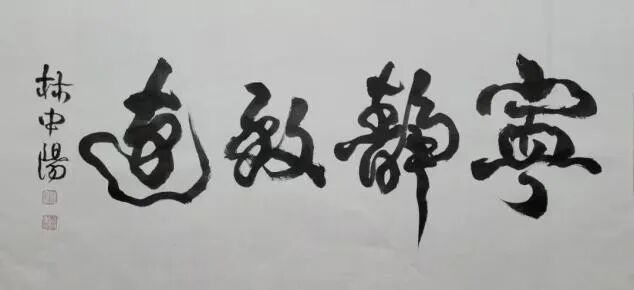 寧靜致遠
林中陽